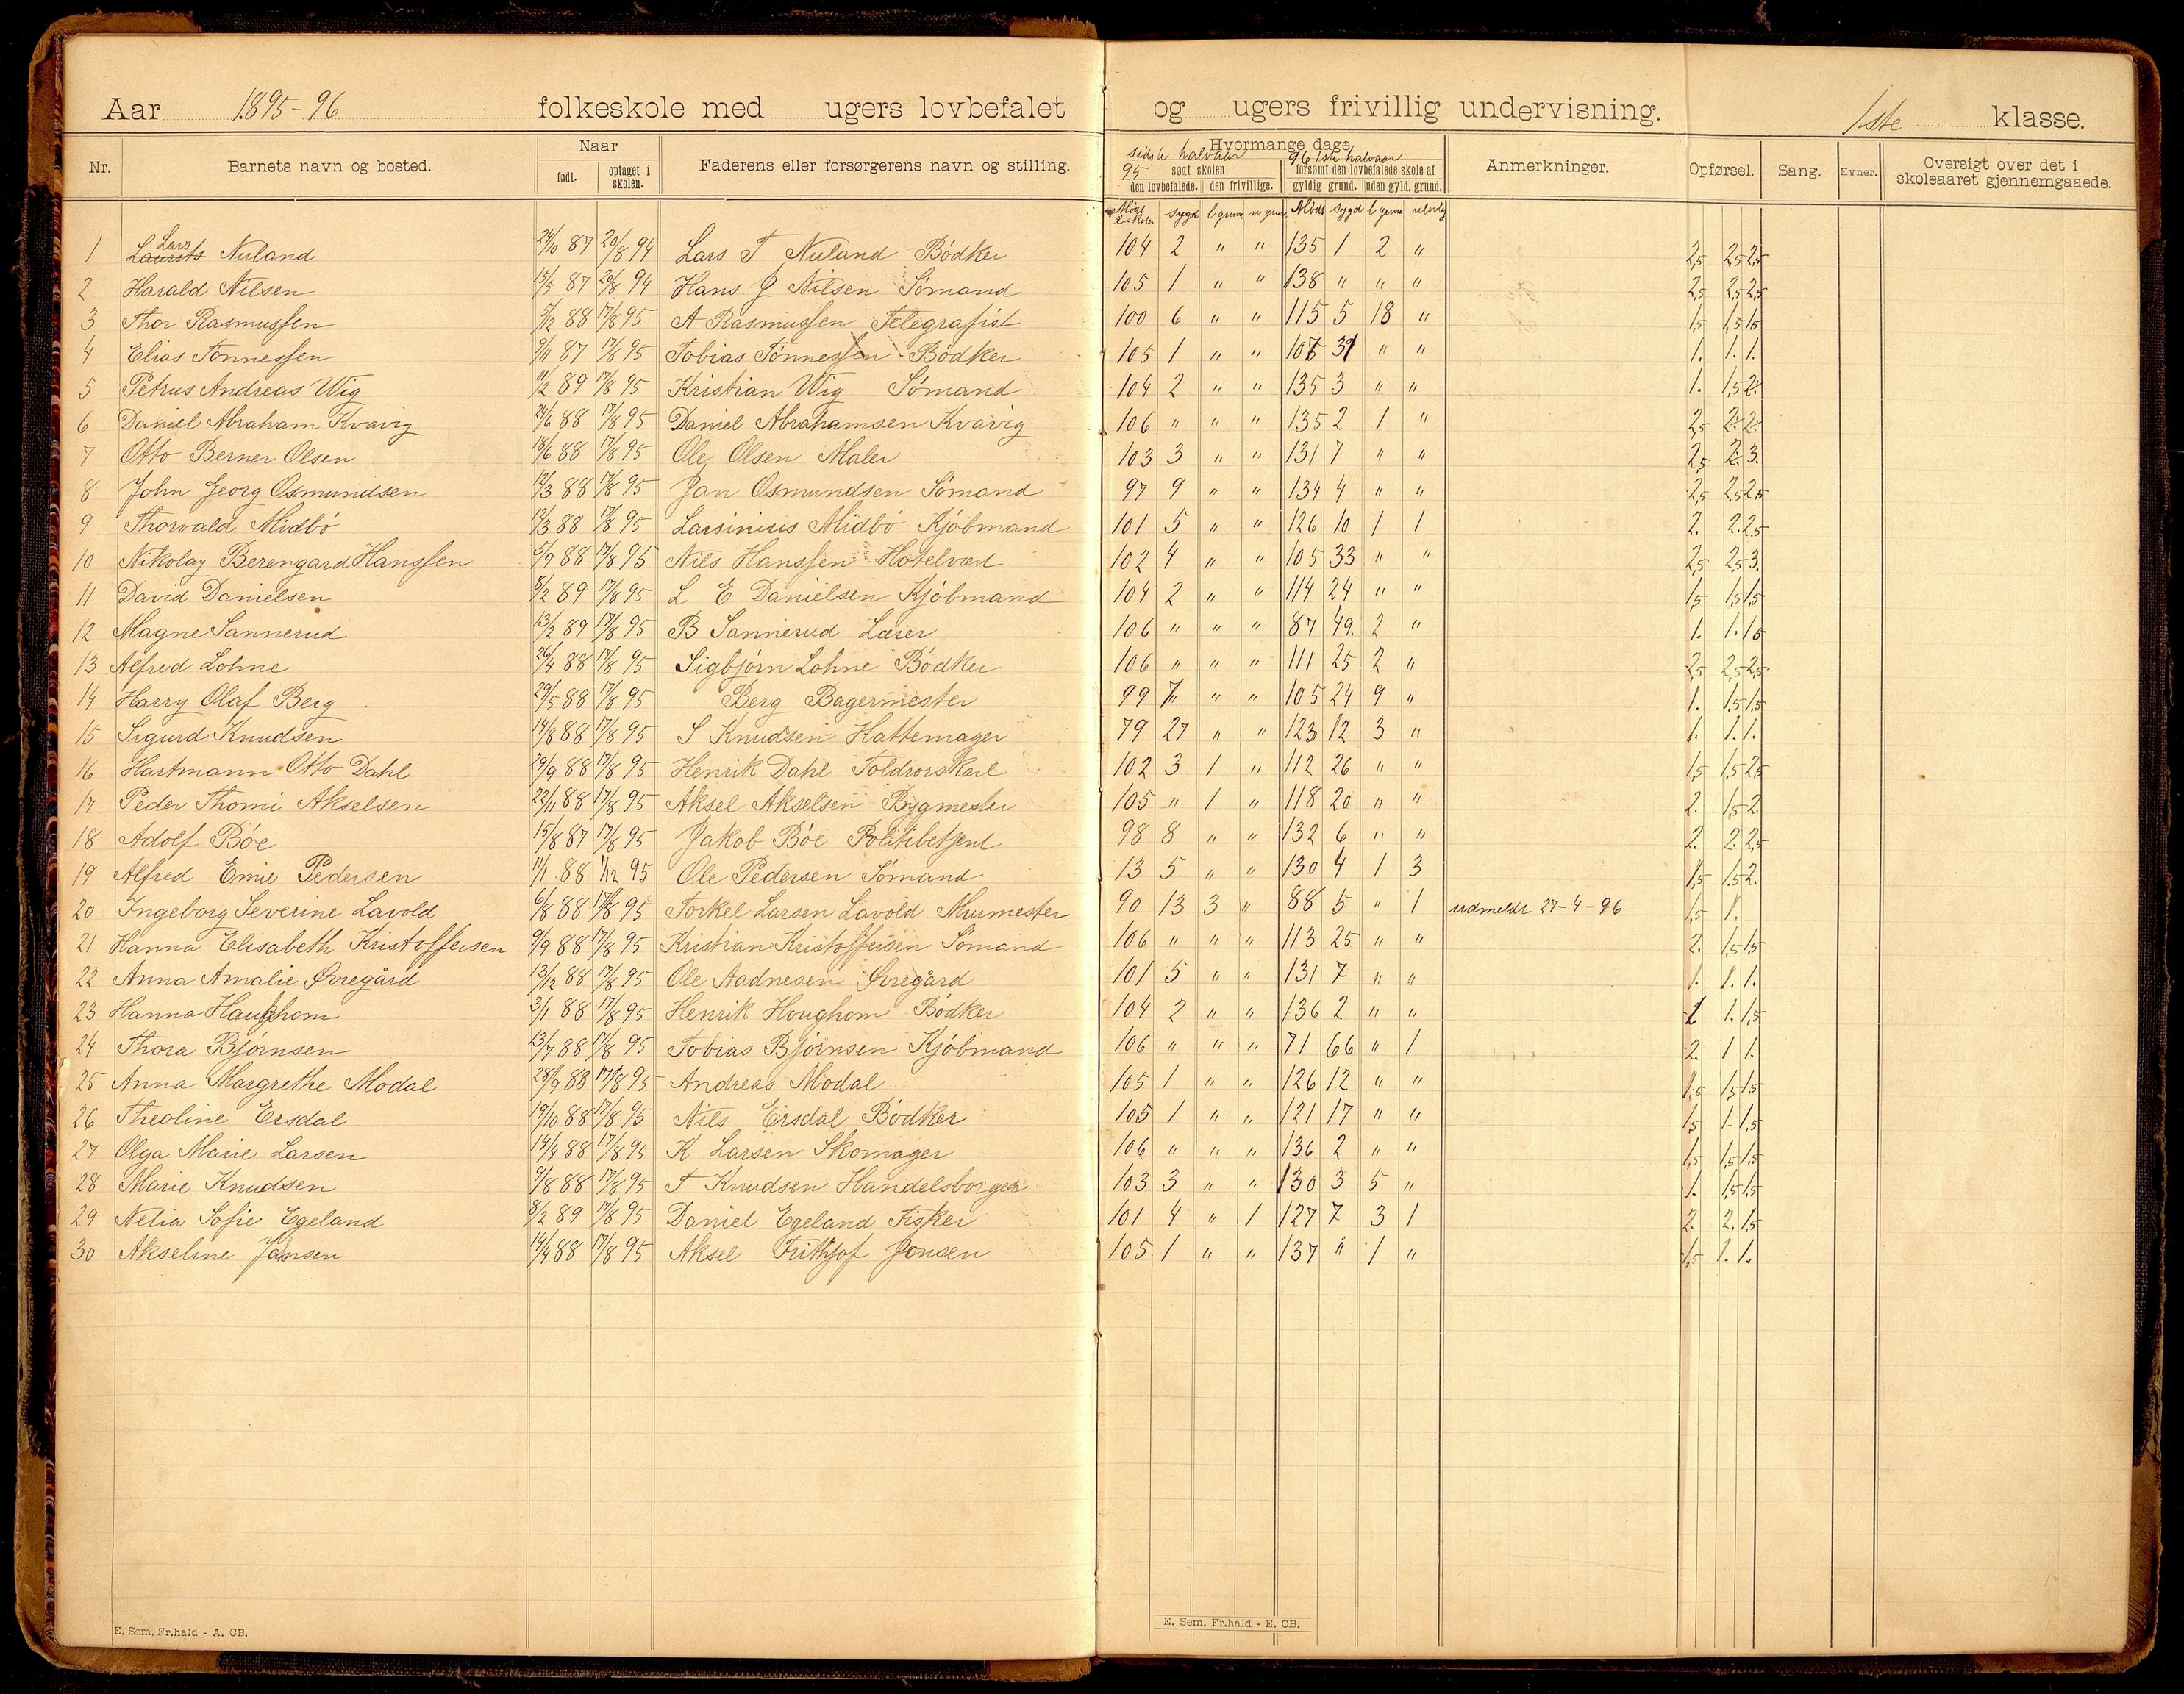 Aar 1895-96 folkeskole med ugers lovbefalet og ugers frivillig undervisning. 1ste klasse.
Nr. Barnets navn og bosted. Naar født. optaget i skolen. Faderens eller forsørgerens navn og stilling. Hvormange dage sidste halvaar 95 søgt skolen den lovbefalede. den frivillige. 96 1ste halvaar forsømt den lovbefalede skole af gyldig grund. uden gyld. grund. Anmerkninger. Opførsel. Sang. Evner. Oversigt over det i skoleaaret gjennemgaaede.
Mødt sygd l grund u grund Mødt sygd l grund ulovlig
1 Laurits Lars Nuland 24/10 87 20/8 94 Lars T Nuland Bødker 104 2 " " 135 1 2 " 2,5 2,5 2,5
2 Harald Nilsen 15/5 87 20/8 94 Hans J Nilsen Sømand 105 1 " " 138 " " " 2,5 2,5 2,5
3 Thor Rasmussen 5/12 88 17/8 95 A Rasmussen Telegrafist 100 6 " " 115 5 18 " 1,5 1,5 1,5
4 Elias Tønnessen 9/11 87 17/8 95 Tobias Tønnessen Bødker 105 1 " " 107 31 " " 1. 1. 1.
5 Petrus Andreas Wig 11/2 89 17/8 95 Kristian Wig Sømand 104 2 " " 135 3 " " 1. 1,5 2.
6 Daniel Abraham Kvavig 24/6 88 17/8 95 Daniel Abrahamsen Kvavig 106 " " " 135 2 1 " 2,5 2. 2.
7 Otto Berner Olsen 18/6 88 17/8 95 Ole Olsen Maler 103 3 " " 131 7 " " 2,5 2. 3.
8 John Georg Osmundsen 12/3 88 17/8 95 Jan Osmundsen Sømand 97 9 " " 134 4 " " 2,5 2,5 2,5
9 Thorvald Midbø 12/3 88 17/8 95 Larsinius Midbø Kjøbmand 101 5 " " 126 10 1 1 2. 2. 2,5
10 Nikolay Berengard Hanssen 5/9 88 17/8 95 Nils Hanssen Hotelvært 102 4 " " 105 33 " " 2,5 2,5 3.
11 David Danielsen 8/2 89 17/8 95 L E Danielsen Kjøbmand 104 2 " " 114 24 " " 1,5 1,5 1,5
12 Magne Sannerud 13/2 89 17/8 95 B Sannerud Lærer 106 " " " 87 49. 2 " 1. 1. 1,5
13 Alfred Lohne 26/4 88 17/8 95 Sigbjørn Lohne Bødker 106 " " " 111 25 2 " 2,5 2,5 2,5
14 Harry Olaf Berg 29/5 88 17/8 95 Berg Bagermester 99 7 " " 105 24 9 " 1. 1,5 1,5
15 Sigurd Knudsen 14/8 88 17/8 95 S Knudsen Hattemager 79 27 " " 123 12 3 " 1. 1. 1.
16 Hartmann Otto Dahl 29/9 88 17/8 95 Henrik Dahl Toldrorskarl 102 3 1 " 112 26 " " 1,5 1,5 2,5
17 Peder Thomi Akselsen 22/11 88 17/8 95 Aksel Akselsen Bygmester 105 " 1 " 118 20 " " 2. 1,5 2.
18 Adolf Bøe 15/8 87 17/8 95 Jakob Bøe Politibetjent 98 8 " " 132 6 " " 2. 2. 2,5
19 Alfred Emil Pedersen 11/1 88 1/12 95 Ole Pedersen Sømand 13 5 " " 130 4 1 3 1,5 1,5 2.
20 Ingeborg Severine Lavold 6/8 88 17/8 95 Torkel Larsen Lavold Murmester 90 13 3 " 88 5 " 1 udmeldt 27-4-96 1,5 1.
21 Hanna Elisabeth Kristoffersen 9/9 88 17/8 95 Kristian Kristoffersen Sømand 106 " " " 113 25 " " 2. 1,5 1,5
22 Anna Amalie Øvregård 13/12 88 17/8 95 Ole Aadnesen Øvregård 101 5 " " 131 7 " " 1. 1. 1.
23 Hanna Haughom 3/1 88 17/8 95 Henrik Houghom Bødker 104 2 " " 136 2 " " 1. 1,5
24 Thora Bjørnsen 13/7 88 17/8 95 Tobias Bjørnsen Kjøbmand 106 " " " 71 66 " 1 2. 1 1.
25 Anna Margrethe Modal 28/9 88 17/8 95 Andreas Modal 105 1 " " 126 12 " " 1,5 1,5 1,5
26 Theoline Ersdal 19/10 88 17/8 95 Nils Ersdal Bødker 105 1 " " 121 17 " " 1,5 1. 1,5
27 Olga Marie Larsen 14/4 88 17/8 95 K Larsen Skomager 106 " " " 136 2 " " 1,5 1,5 1,5
28 Marie Knudsen 9/8 88 17/8 95 T Knudsen Handelsborger 103 3 " " 130 3 5 " 1. 1,5 1,5
29 Nelia Sofie Egeland 8/2 89 17/8 95 Daniel Egeland Fisker 101 4 " 1 127 7 3 1 2. 2. 1,5
30 Akseline Jansen 14/4 88 17/8 95 Aksel Frithjof Jonsen 105 1 " " 137 " 1 " 1,5 1. 1.
E. Sem, Fr.hald - A. CB. E. Sem, Fr.hald - E. CB.